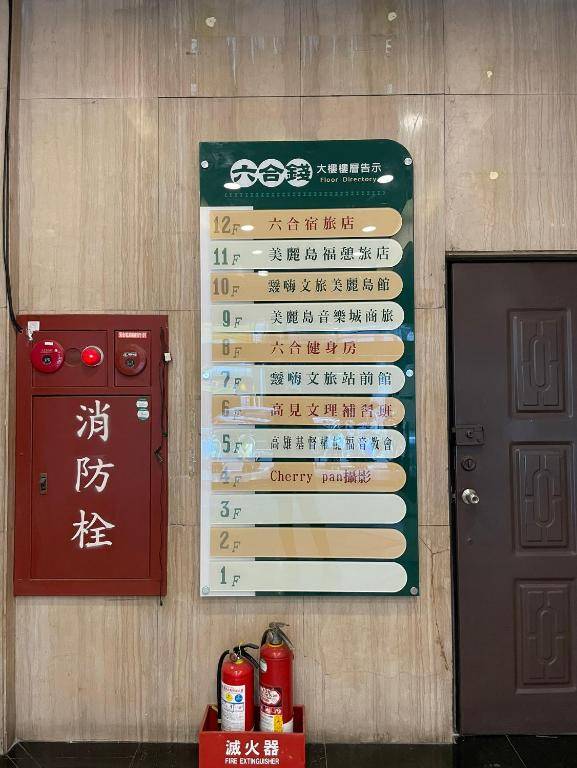 六合錢 大樓樓層告示
Floor Directory
12F 六合宿旅店
11F 美麗島福憩旅店
10F 靉嗨文旅美麗島館
9F 美麗島音樂城商旅
8F 六合健身房
7F 靉嗨文旅站前館
6F 高見文理補習班
5F 高雄基督權能福音教會
4F Cherry pan攝影
3F
2F
1F
消防栓
滅火器
FIRE EXTINGUISHER